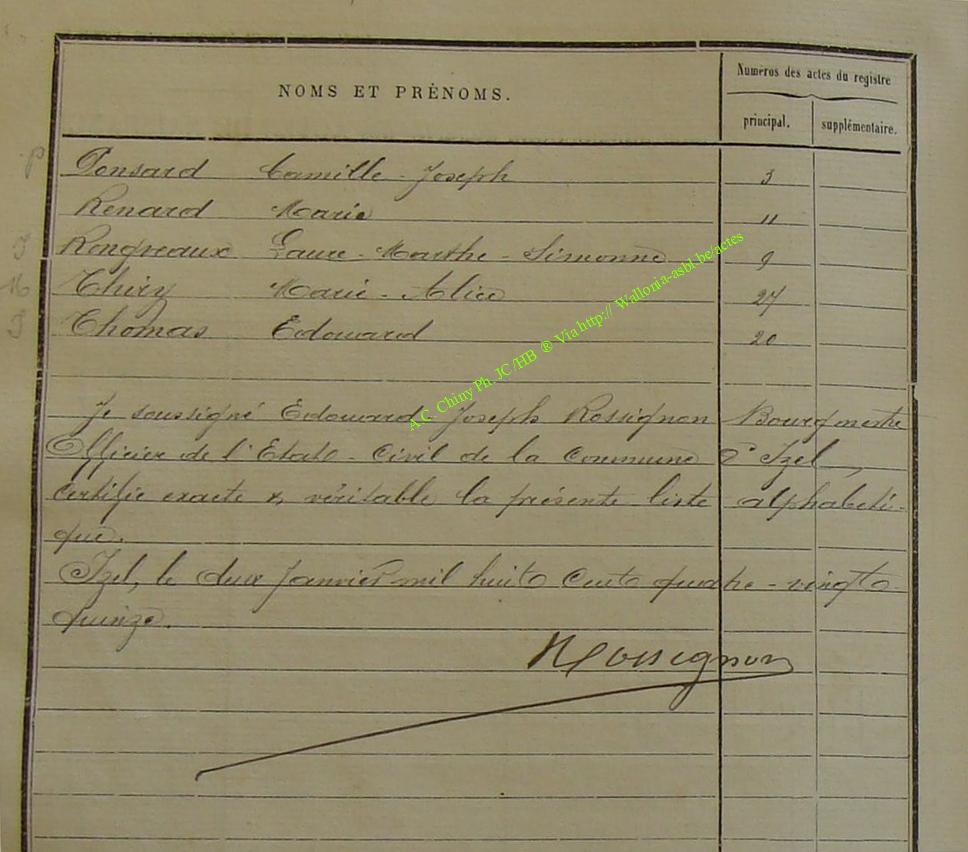 NOMS ET PRÉNOMS.
Numéros des actes du registre
principal. supplémentaire.
P
Ponsard Camille-Joseph 3
Renard Marie 11
Rongveaux Laure-Marthe-Simonne 9
Thiry Marie-Alice 27
Thomas Edouard 20
A.C. Chiny Ph. JC /HB ® Via http:// Wallonia-asbl.be/actes
Je soussigné Edouard-Joseph Rossignon Bourgmestre
Officier de l'Etat-Civil de la Commune d'Izel,
Certifie exacte & véritable la présente liste alphabéti-
que.
Izel, le deux Janvier mil huit Cent quatre-vingt-
quinze.
Rossignon